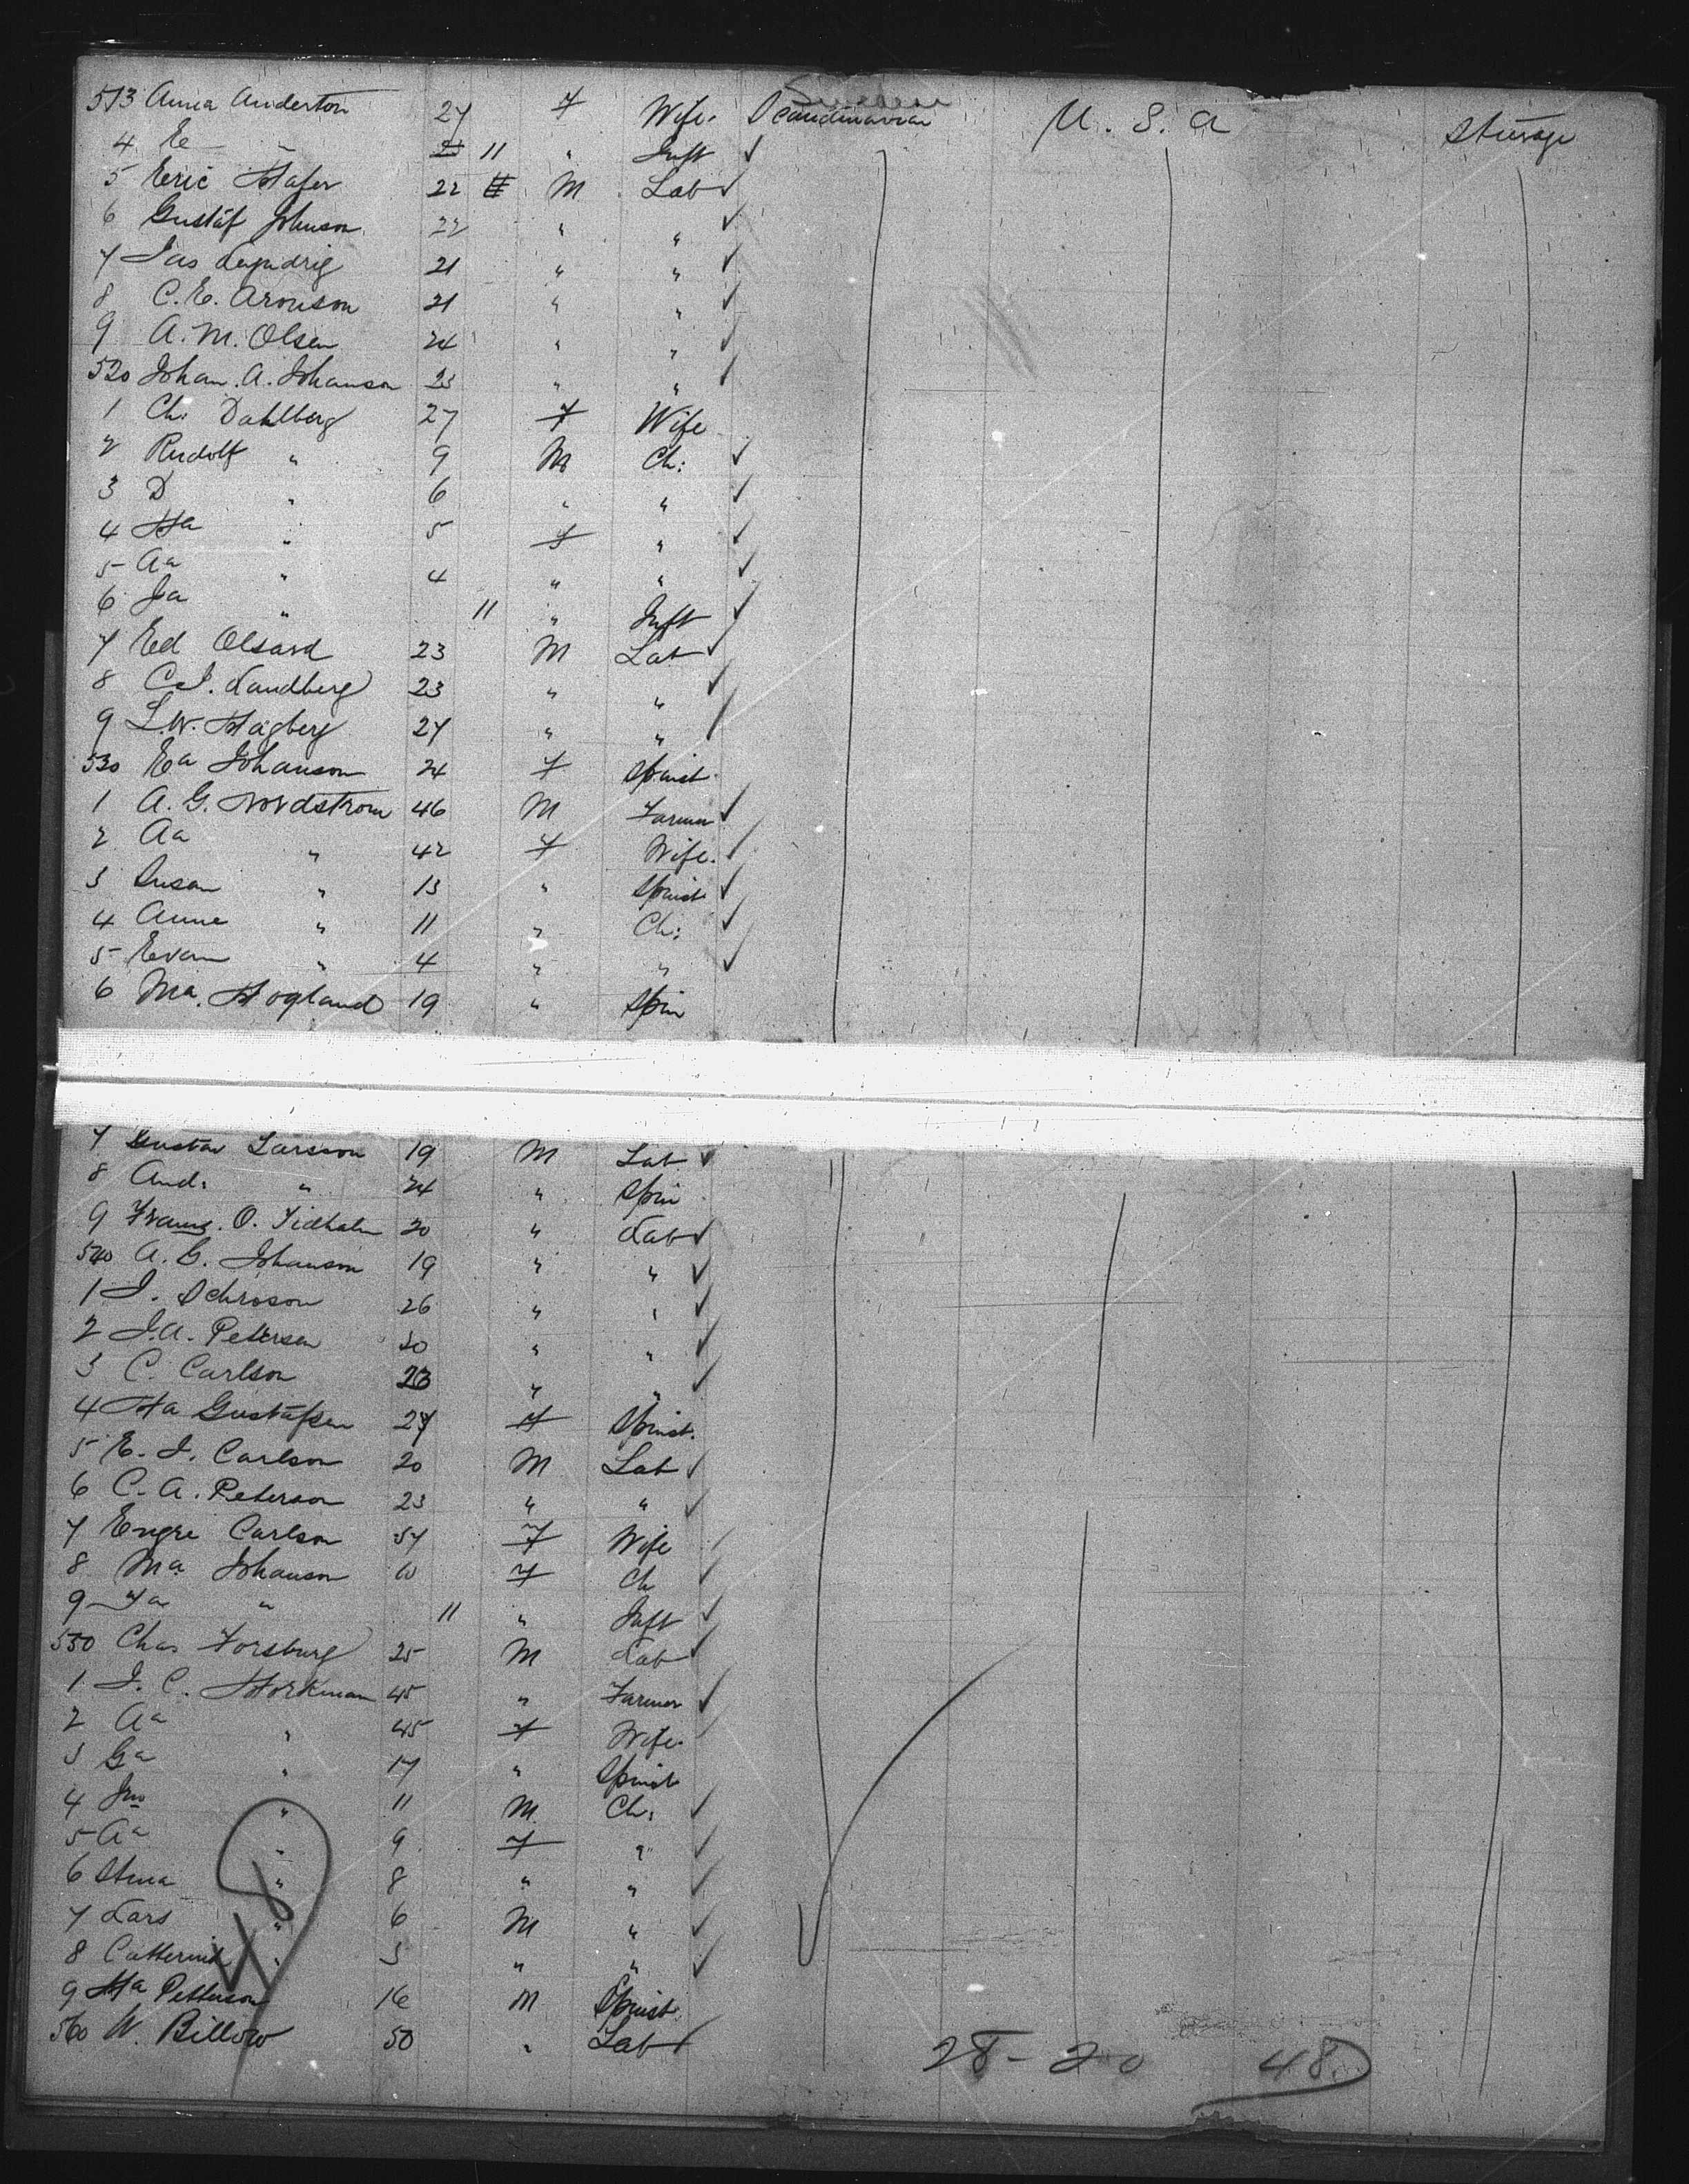 Sweden
513 Anna Anderton 27 F Wife. Scandinavian U.S.A Steerage
4 Ee " 11 " Inft ✓
5 Eric Hafer 22 M Lab ✓
6 Gustaf Johnson 22 " " ✓
7 Jas 21 " " ✓
8 C.E. Aronson 21 " " ✓
9 A.M. Olsen 24 " " ✓
520 Johan. A. Johanson 23 " " ✓
1 Ch: Dahlberg 27 F Wife
2 Rudolf " 9 M Ch: ✓
3 D " 6 " " ✓
4 Ha " 5 F " ✓
5 Aa " 4 " " ✓
6 Ja " 11 " Inft ✓
7 Ed Olsard 23 M Lab ✓
8 C.J. Landberg 23 " " ✓
9 L.W. Hagberg 27 " " ✓
530 Ea Johanson 24 F Spinst.
1 A.G. Nordstrom 46 M Farmer ✓
2 Aa " 42 F Wife. ✓
3 Susan " 13 " Spinst ✓
4 Anne " 11 " Ch: ✓
5 Evan " 4 " " ✓
6 Ma. Hogland 19 " Spin
7 Gustav Larsson 19 M Lab ✓
8 And: " 24 " Spin
9 Frans. O. Tidholm 20 " Lab ✓
540 A.C. Johanson 19 " " ✓
1 J. Schroson 26 " " ✓
2 J.A. Petersen 30 " " ✓
3 C. Carlson 23 " " ✓
4 Ha Gustafsen 27 F Spinst.
5 E.J. Carlson 20 M Lab ✓
6 C.A. Peterson 23 " " ✓
7 Engre Carlson 57 F Wife ✓
8 Ma Johanson F Ch ✓
9 Fa " 11 " Inft ✓
550 Chas Forsburg 25 M Lab ✓
1 J.C. Horkman 45 " Farmer ✓
2 Aa " 45 F Wife.
3 Ga " 17 " Spinst
4 Jno " 11 M Ch: ✓
5 Aa " 9 F " ✓
6 Stina " 8 " " ✓
7 Lars " 6 M " ✓
8 " 3 " " ✓
9 Ha Petterson 16 M Spinst.
560 W. Billow 50 " Lab ✓
48
28 - 20 48